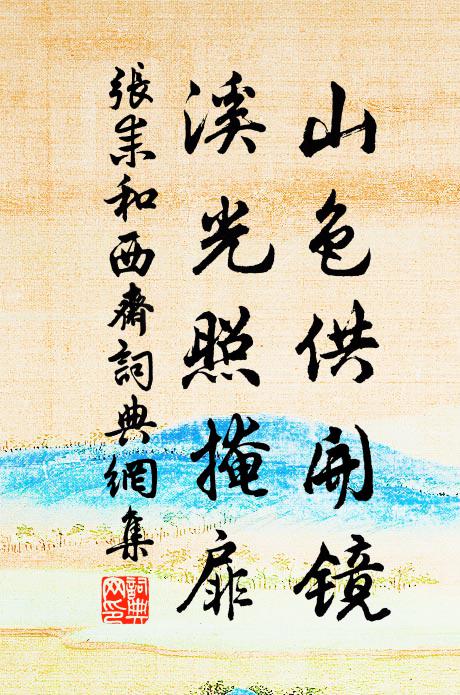 山色供開镜
溪光照掩扉
張耒和西齋詞典網集
詞典